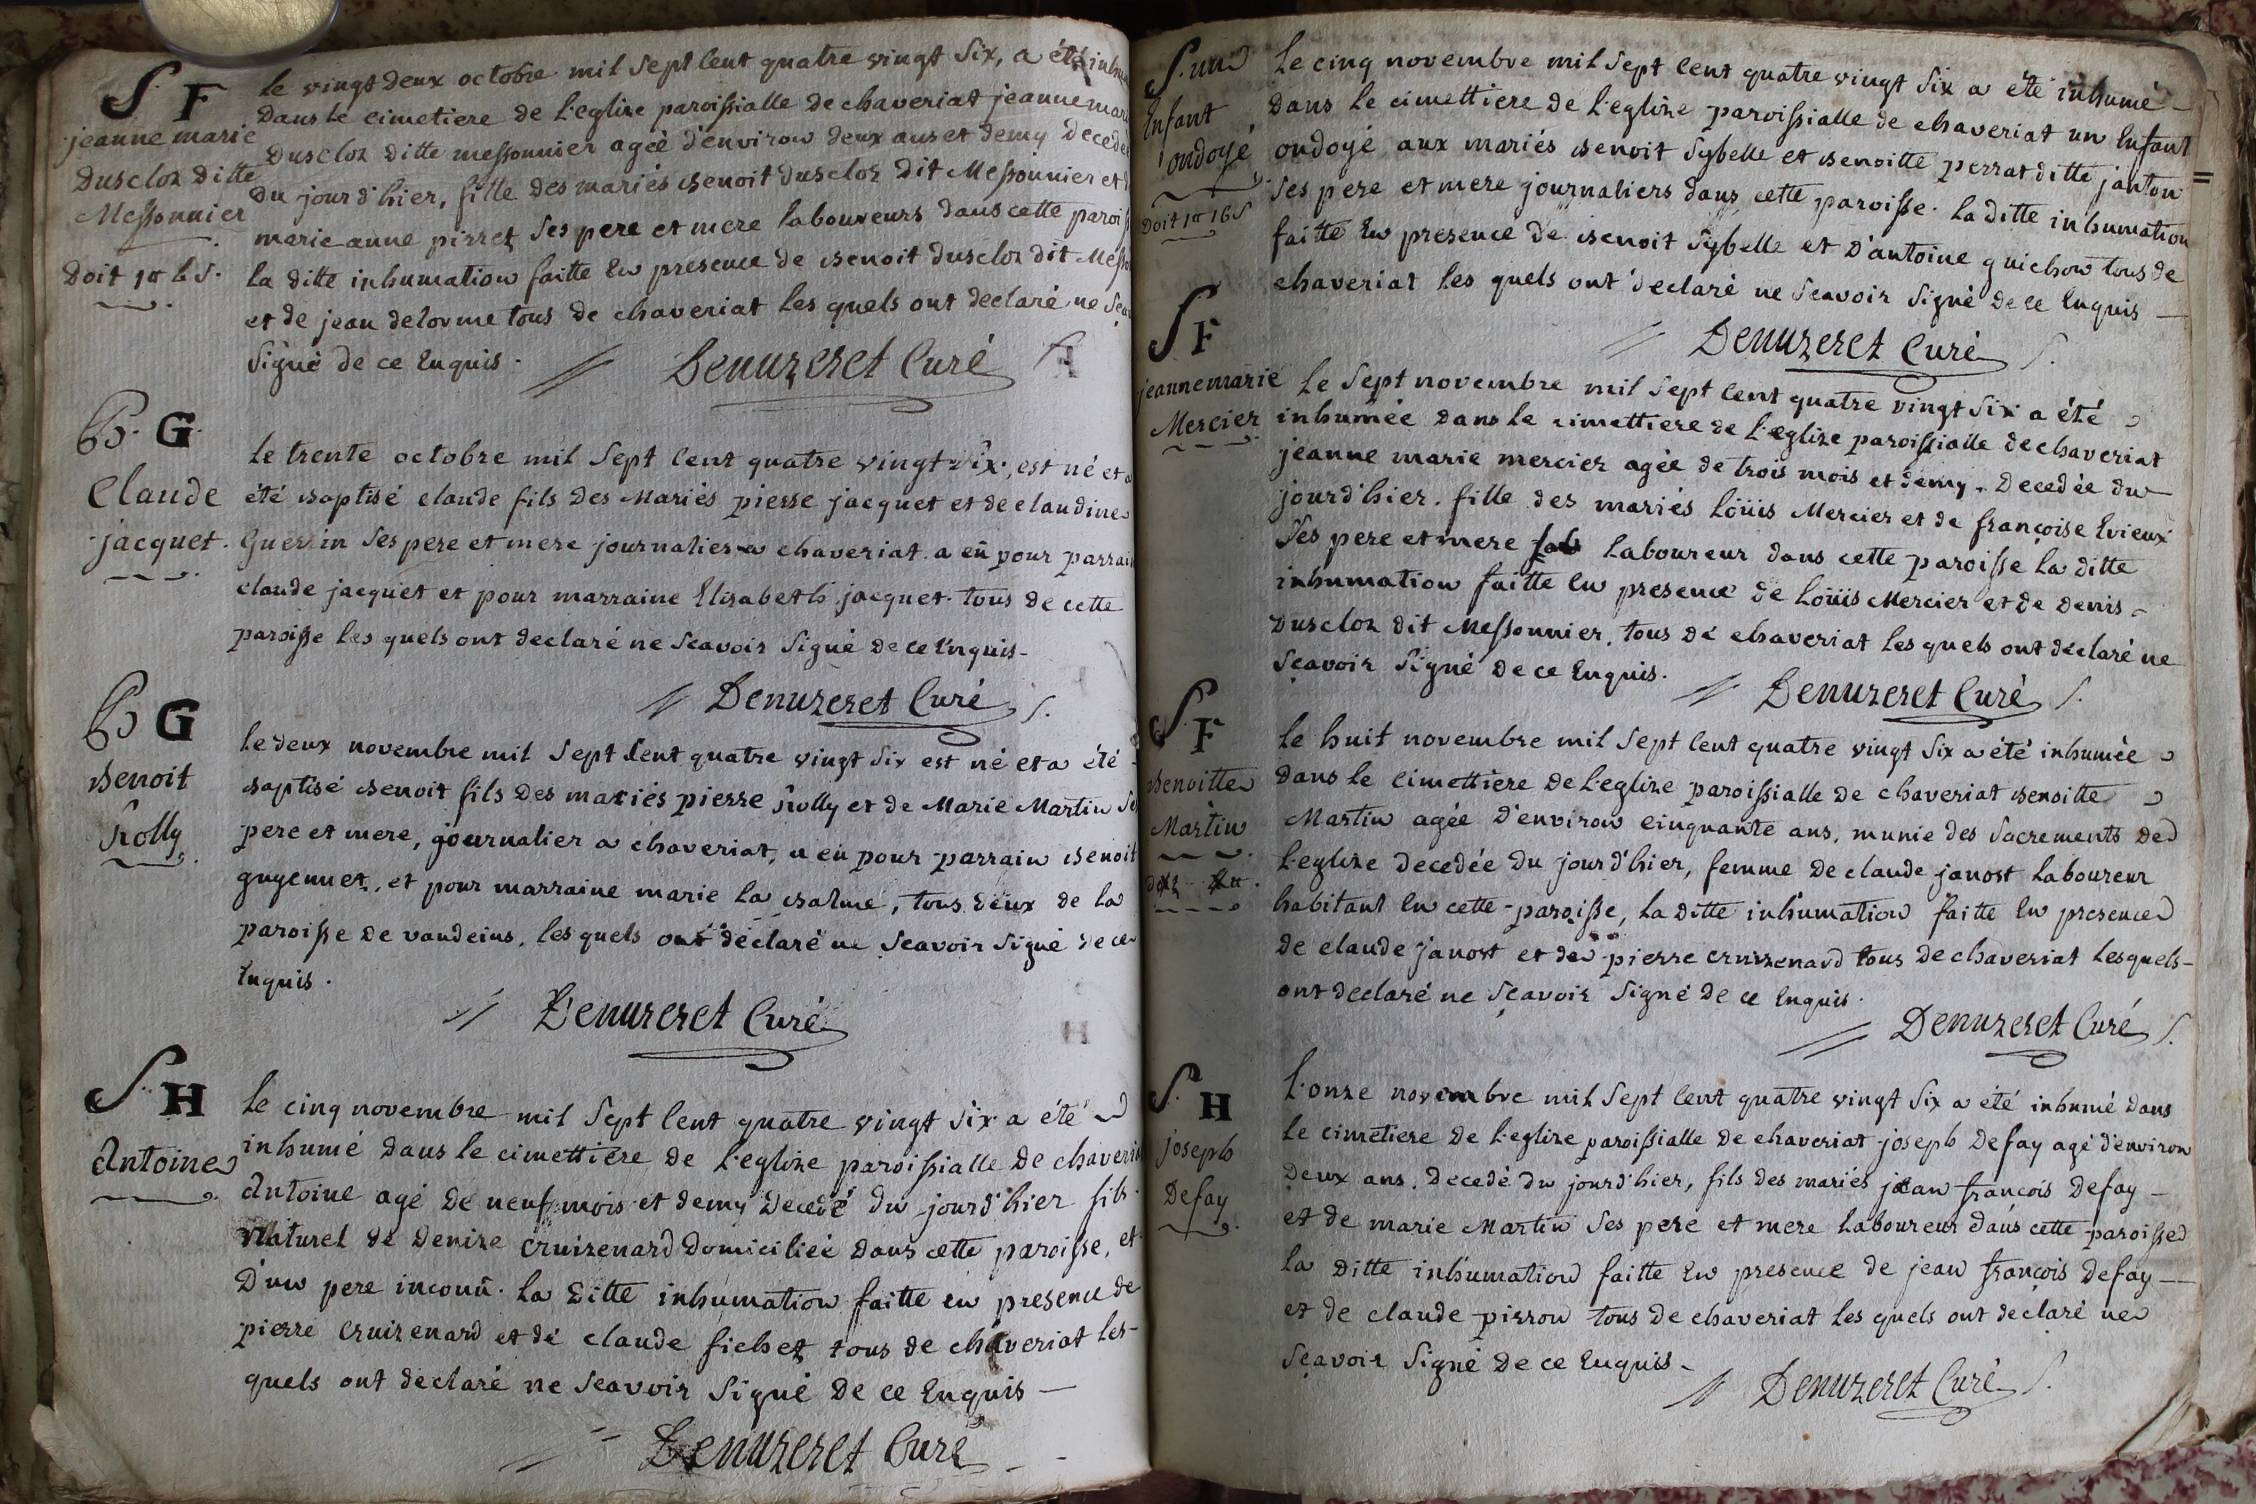 S. F
jeanne marie
Dusclos ditte
Messonnier
Doit 1tt
le vingt deux octobre mil sept cent quatre vingt six, a été
dans le cimetiere de l'eglize paroissialle de chaveriat jeanne
Dusclos ditte messonnier ageé d'environ deux ans et demy
du jour d'hier, fille des mariés benoit dusclos dit Messonnier et
marie anne pirret ses pere et mere laboureurs dans cette
la ditte inhumation faitte en presence de benoit dusclos dit
et de jean delorme tous de chaveriat les quels ont declaré ne
signé de ce enquis.
Denuzeret Curé
B. G
Claude
jacquet.
le trente octobre mil sept cent quatre vingt six, est né et a
été baptisé claude fils des Mariés pierre jacquet et de claudine
Guerrin ses pere et mere journalier a chaveriat. a eû pour parrain
claude jacquet et pour marraine Elisabeth jacquet. tous de cette
paroisse les quels ont declaré ne scavoir signé de ce enquis-
Denuzeret Curé
B G
Benoit
Rolly
le deux novembre mil sept cent quatre vingt six est né et a été
baptisé benoit fils des mariés pierre Rolly et de Marie Martin
pere et mere, journalier a chaveriat, a eû pour parrain benoit
guyennet, et pour marraine marie la balme, tous deux de la
paroisse de vandeins. les quels ont déclaré ne scavoir signé de ce
enquis.
Denuzeret Curé
S. H
Antoine
le cinq novembre mil sept cent quatre vingt six a été
inhumé dans le cimettiere de l'eglize paroissialle de
Antoine agé de neuf mois et demy decedé du jourd'hier fils
Naturel de denize cruizenard domiciliée dans cette paroisse, et
D'un pere inconû. la ditte inhumation faitte en presence de
pierre cruizenard et de claude fichet tous de chaveriat les-
quels ont declaré ne scavoir signé de ce enquis —
Denuzeret Curé
S. un
Enfant
ondoyé
Doit 1tt 16s
le cinq novembre mil sept cent quatre vingt six a été inhumé -
dans le cimettiere de l'eglize paroissialle de chaveriat un enfant
ondoyé aux mariés benoit sybelle et benoitte perrat ditte janton
ses pere et mere journaliers dans cette paroisse. la ditte inhumation
faitte en presence de benoit sybelle et d'antoine guichon tous de
chaveriat les quels ont declaré ne scavoir signé de ce enquis —
Denuzeret Curé
S F
jeanne marie
Mercier
le sept novembre mil sept cent quatre vingt six a été
inhumée dans le cimettiere de l'eglize paroissialle de chaveriat
jeanne marie mercier agée de trois mois et demy. decedée du
jourd'hier. fille des mariés loüis Mercier et de françoise Evieux
ses pere et mere laboureur dans cette paroisse la ditte
inhumation faitte en presence de loüis Mercier et de denis -
dusclos dit Messonnier. tous de chaveriat les quels ont déclaré ne
sçavoir signé de ce enquis.
Denuzeret Curé
S. F
Benoitte
Martin
le huit novembre mil sept cent quatre vingt six a été inhumée
dans le cimettiere de l'eglize paroissialle de chaveriat benoitte
Martin agée d'environ cinquante ans, munie des sacrements de
l'eglize decedée du jour d'hier, femme de claude janost laboureur
habitant en cette paroisse, la ditte inhumation faitte en presence
de claude janost et de pierre cruizenard tous de chaveriat lesquels-
ont declaré ne sçavoir signé de ce enquis.
Denuzeret Curé
S. H
joseph
Defay
l'onze novembre mil sept cent quatre vingt six a été inhumé dans
le cimetiere de l'eglize paroissialle de chaveriat joseph Defay agé d'environ
deux ans. decedé du jourd'hier, fils des mariés jean françois Defay -
et de marie Martin ses pere et mere laboureur dans cette paroisse
la ditte inhumation faitte en presence de jean françois defay —
et de claude pirron tous de chaveriat les quels ont déclaré ne
sçavoir signé de ce enquis -
Denuzeret Curé